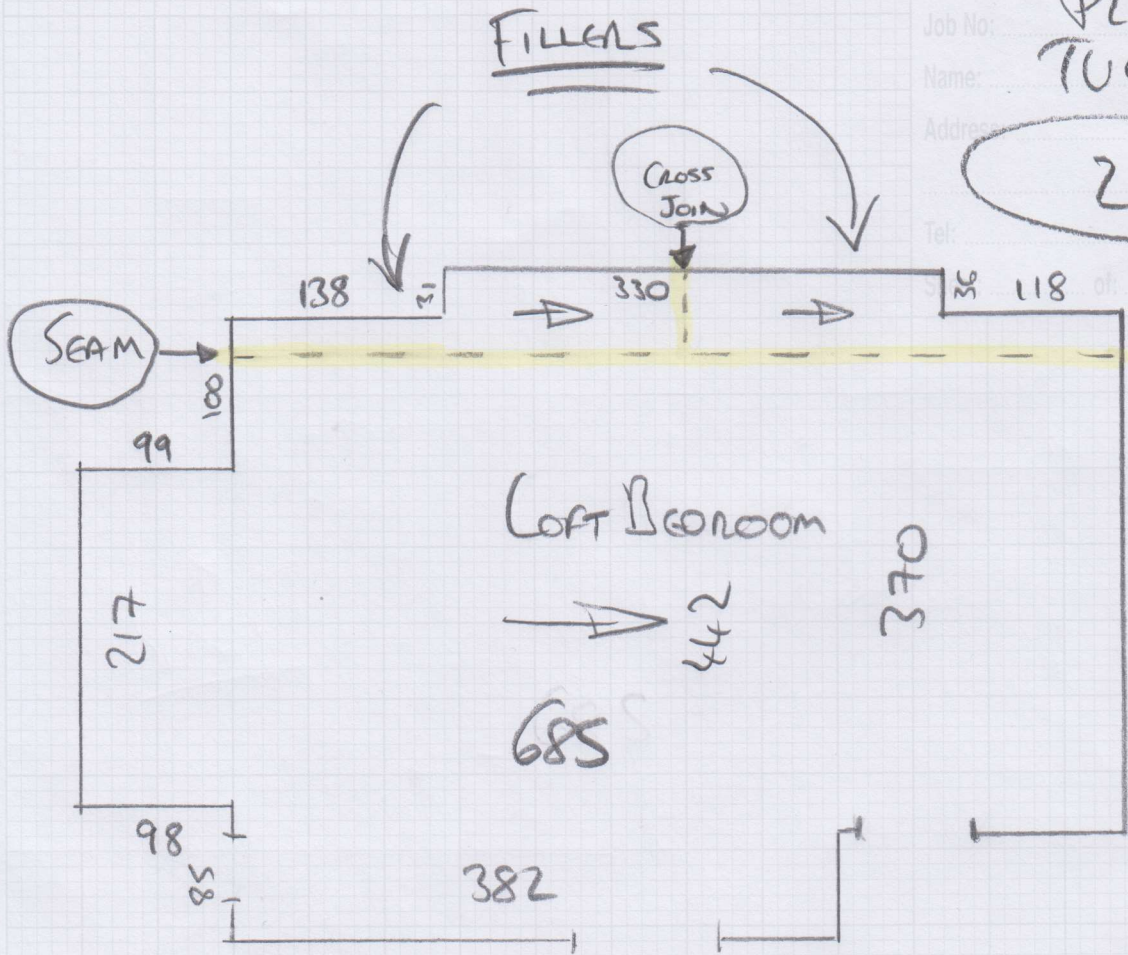 FILLERS
Job No:
Name:
Address:
2
Tel:
CROSS
JOIN
138
31
330
36
118
of:
SEAM
100
99
LOFT BEDROOM
217
442
370
685
98
85
382